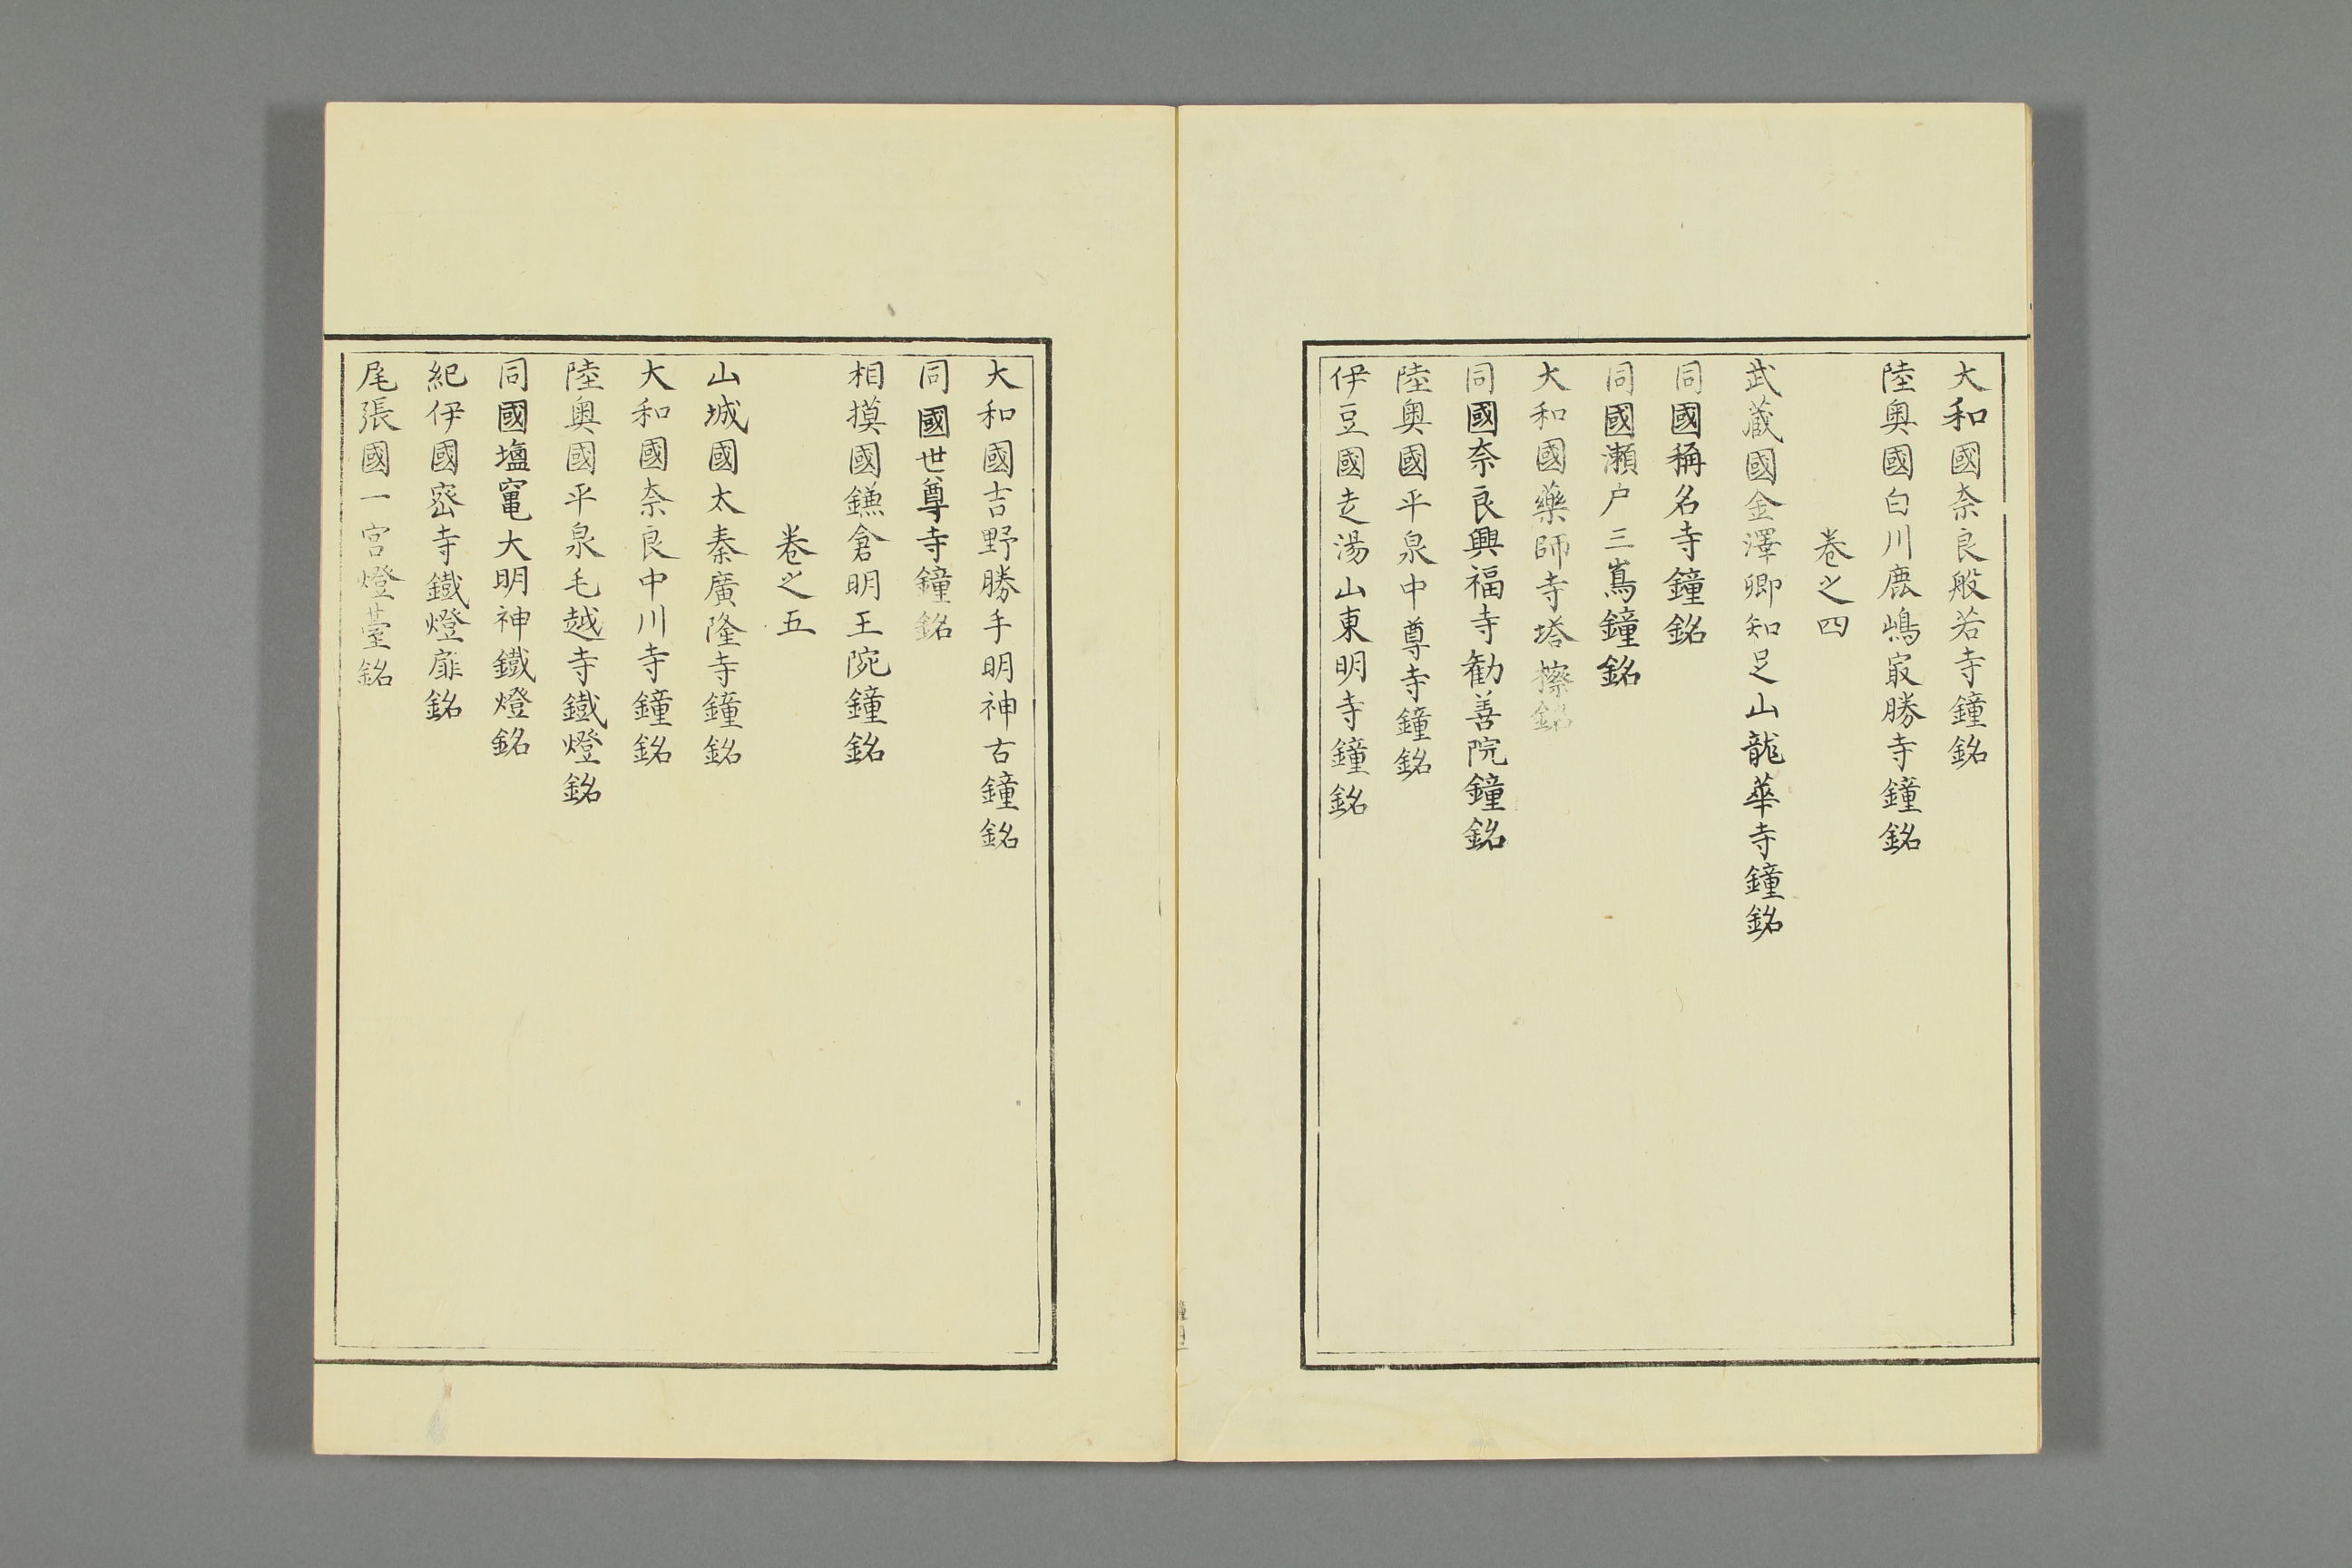 大和國奈良般若寺鐘銘
陸奥國白川鹿嶋㝡勝寺鐘銘
卷之四
武蔵國金澤卿知足山龍華寺鐘銘
同國稱名寺鐘銘
同國瀬户三嶌鐘銘
大和國藥師寺塔擦銘
同國奈良興福寺勧善院鐘銘
陸奥國平泉中尊寺鐘銘
伊豆國走湯山東明寺鐘銘
大和國吉野勝手明神古鐘銘
同國世尊寺鐘銘
相摸國鎌倉明王院鐘銘
卷之五
山城國太秦廣隆寺鐘銘
大和國奈良中川寺鐘銘
陸奥國平泉毛越寺鐵燈銘
同國塩竃大明神鐵燈銘
紀伊國宻寺鐵燈扉銘
尾張國一宮燈臺銘